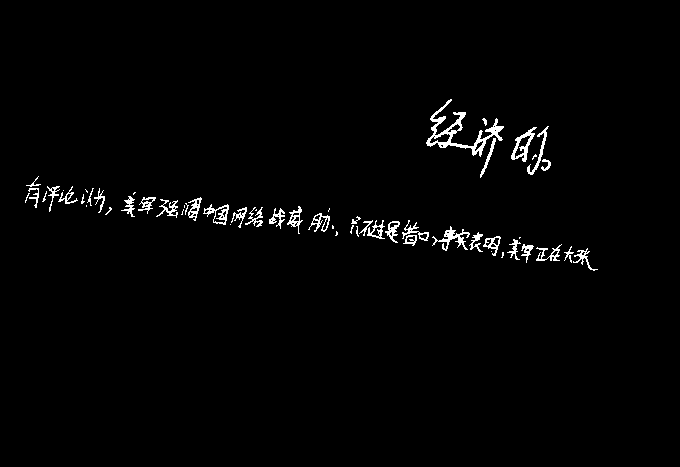 经济的。
有评论认为，美军强调中国网络战威胁，只不过是借口，事实表明，美军正在大张